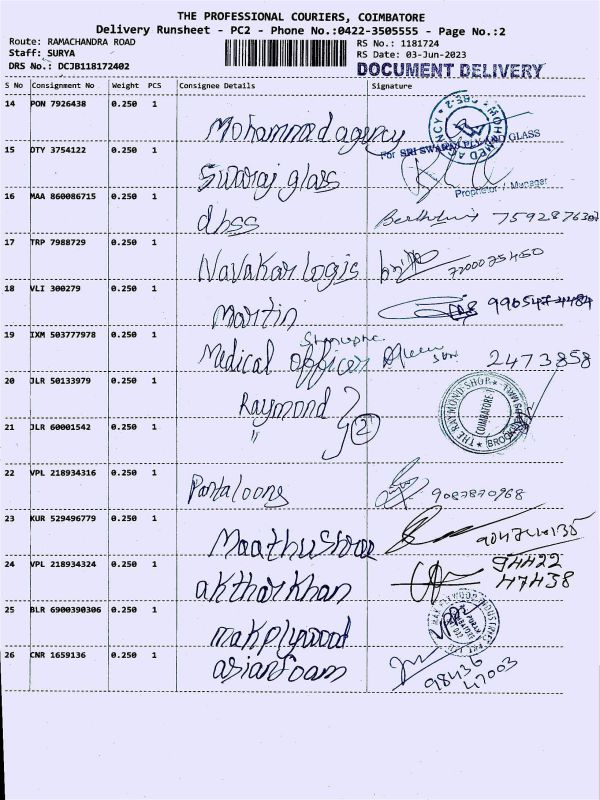 THE PROFESSIONAL COURIERS, COIMBATORE
Delivery Runsheet - PC2 - Phone No.:0422-3505555 - Page No.:2
Route: RAMACHANDRA ROAD
RS No.: 1181724
Staff: SURYA
RS Date: 03-Jun-2023
DRS No.: DCJB118172402
DOCUMENT DELIVERY
S No Consignment No Weight PCS Consignee Details Signature
14 PON 7926438 0.250 1 Mohammed agency
MOHAMMED AGENCY
For SRI SWARAJ PLY AND GLASS
15 DTY 3754122 0.250 1 Swaraj glass
Proprietor / Manager
16 MAA 860086715 0.250 1 dhss
17 TRP 7988729 0.250 1 Navakar logis 7200075460
18 VLI 300279 0.250 1 Martin
19 IXM 503777978 0.250 1 Medical officer 2473858
20 JLR 50133979 0.250 1 Raymond
THE RAYMOND SHOP
COIMBATORE
21 JLR 60001542 0.250 1 " 2
22 VPL 218934316 0.250 1 Pantaloons 9087870968
23 KUR 529496779 0.250 1
24 VPL 218934324 0.250 1 akthar khan 94422
47438
25 BLR 6900390306 0.250 1 makplywood
26 CNR 1659136 0.250 1 asianfoam 98436
47003